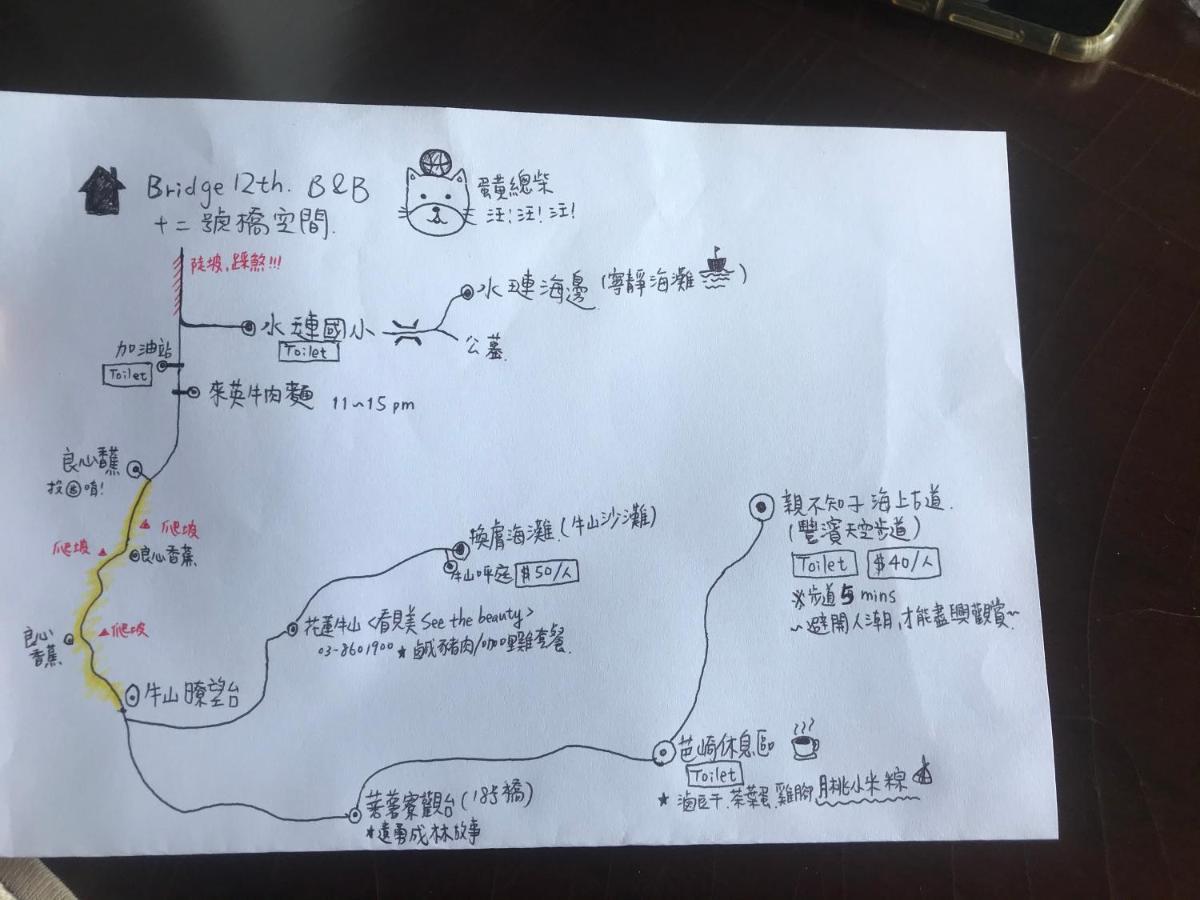 Bridge 12th. B&B
十二號橋空間.
蛋黃總柴
汪!汪!汪!
陡坡,踩煞!!!
水璉海邊 (寧靜海灘)
水璉國小
Toilet
公墓.
加油站
Toilet
來英牛肉麵 11~15 pm
良心香蕉
投 唷!
爬坡
爬坡
良心香蕉
爬坡
良心
香蕉
牛山瞭望台
換膚海灘.(牛山沙灘)
牛山呼庭 $50/人
花蓮牛山<看見美 See the beauty>
03-8601900 ★鹹豬肉/咖哩雞套餐.
親不知子 海上古道.
(豐濱天空步道)
Toilet $40/人
※步道 5 mins
~避開人潮,才能盡興觀賞~
芭崎休息區
Toilet
★ 滷豆干.茶葉蛋.雞腳.月桃小米粽
蕃薯寮觀台(185橋)
*遠勇成林故事